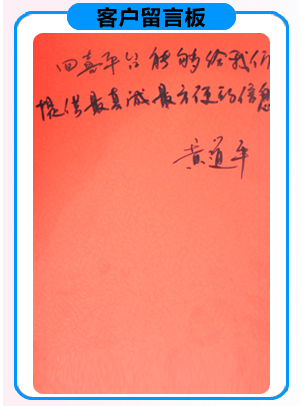 客户留言板
四喜平台能够给我们
提供最真诚最方便的信息
黄道平